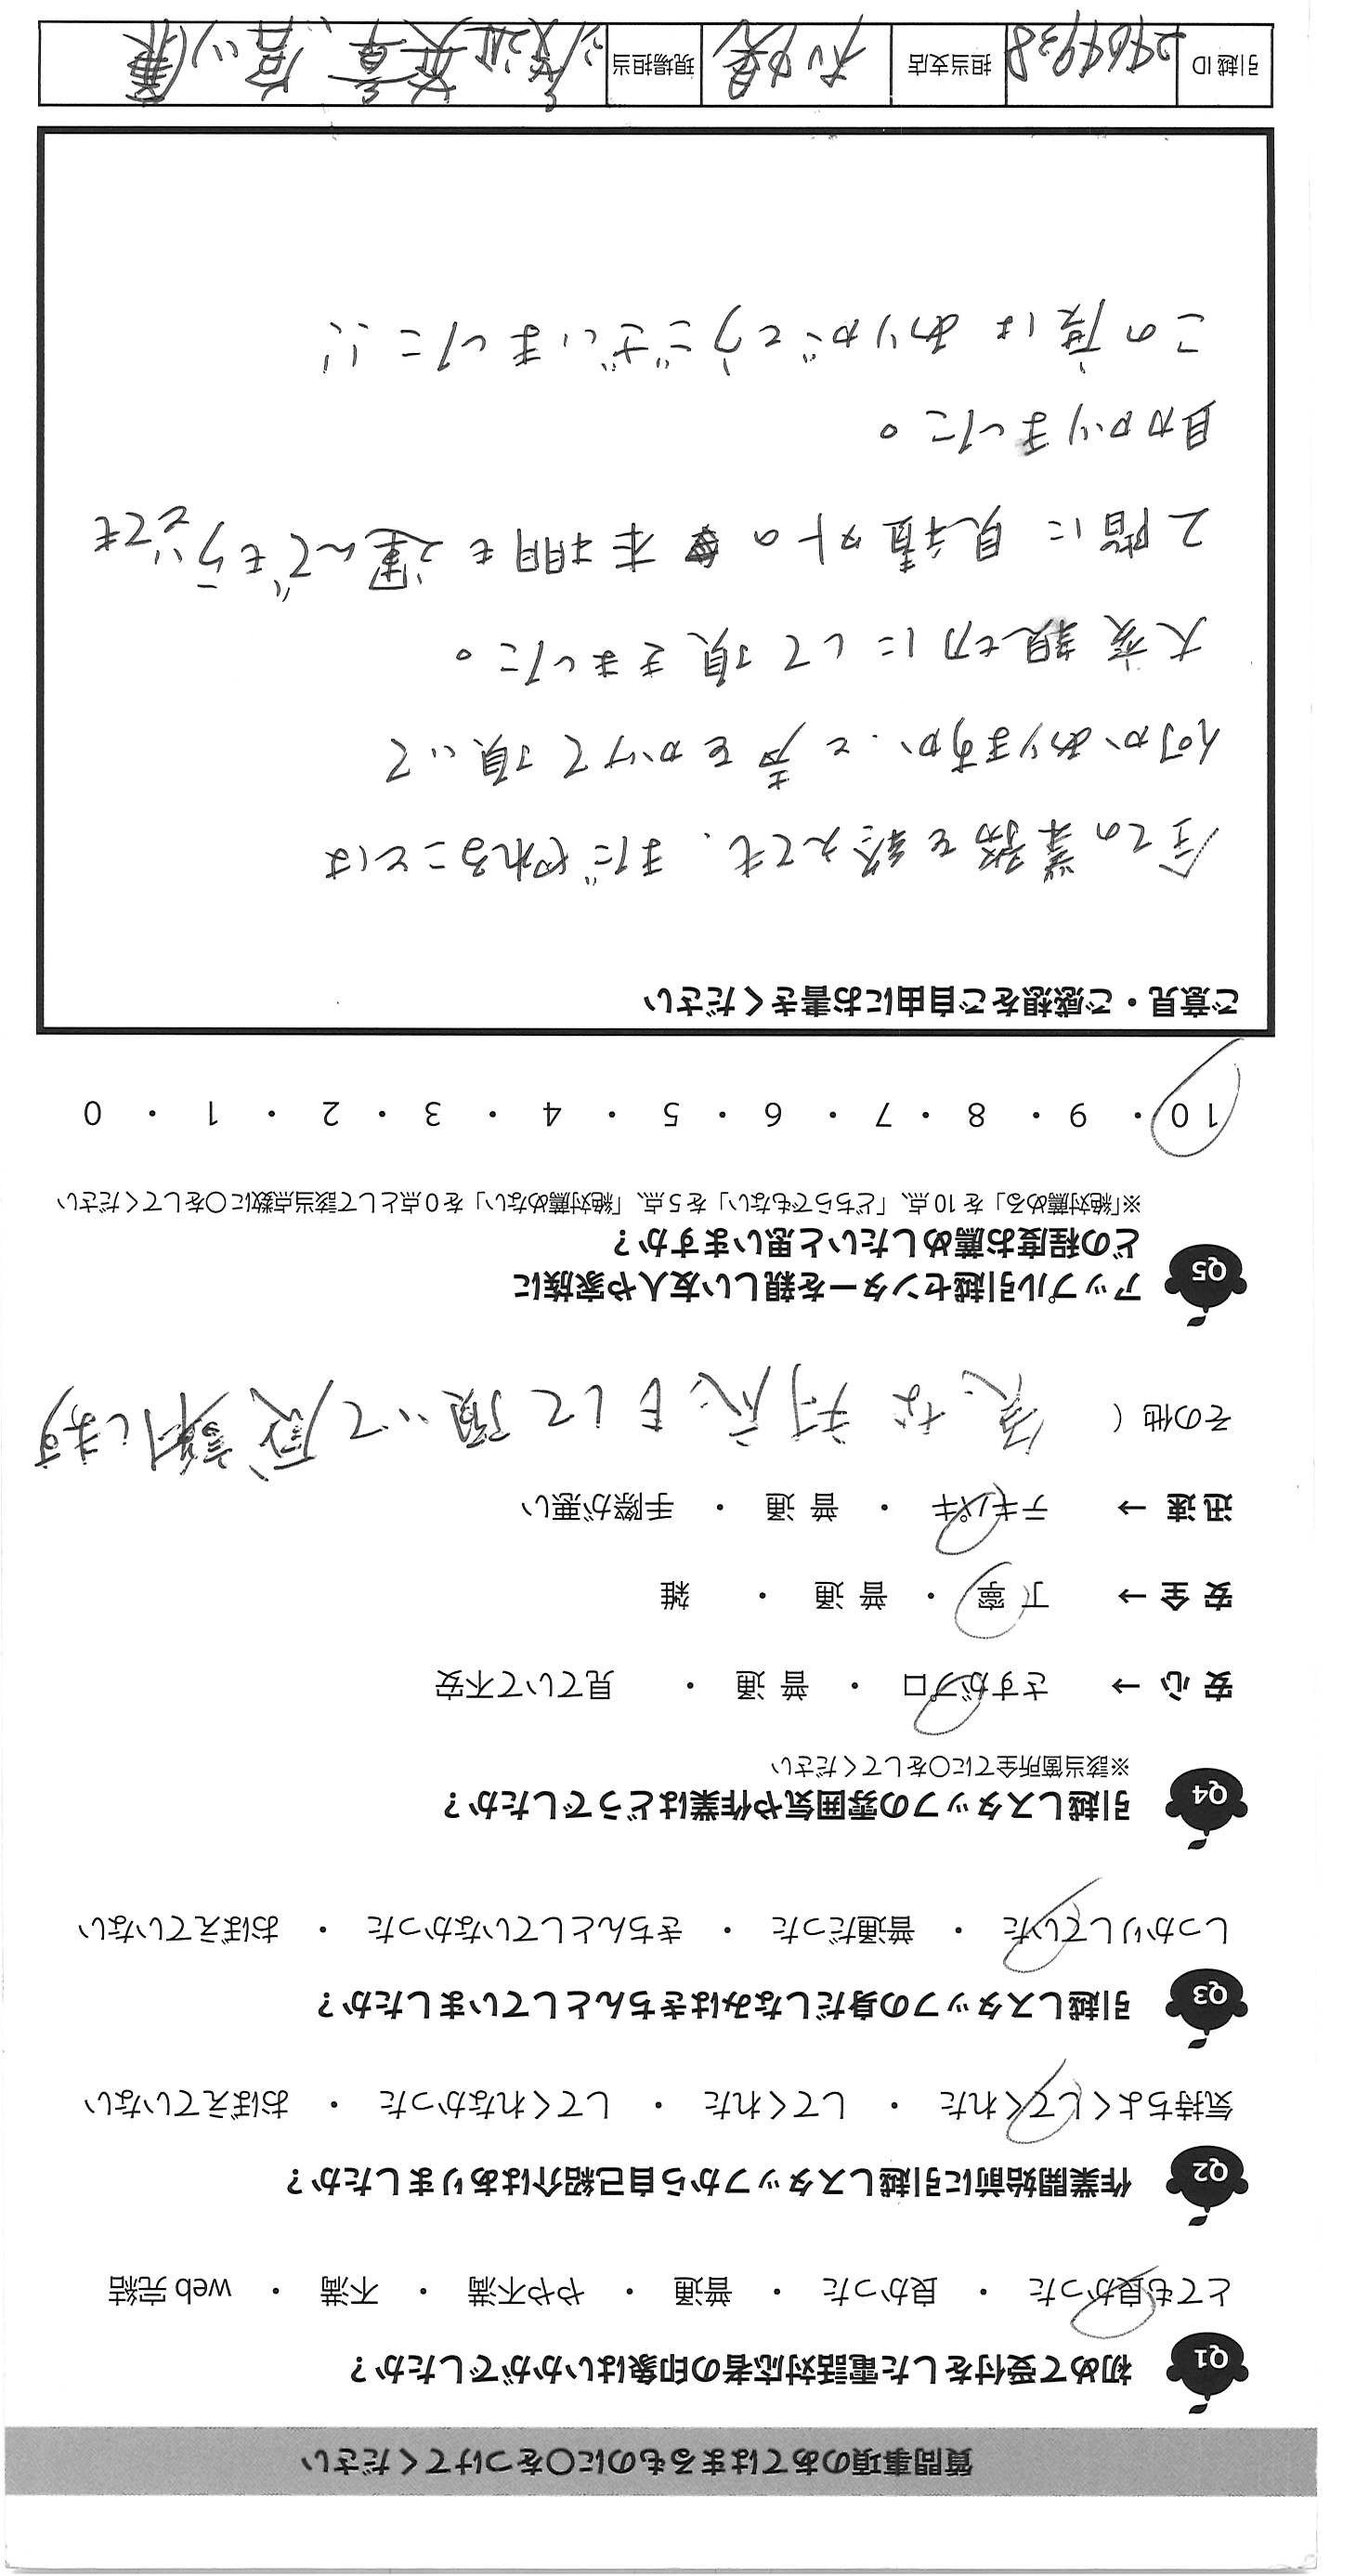 質問事項のあてはまるものに○をつけてください
Q1 初めて受付をした電話対応者の印象はいかがでしたか?
とても良かった ・ 良かった ・ 普通 ・ やや不満 ・ 不満 ・ web 完結
Q2 作業開始前に引越しスタッフから自己紹介はありましたか?
気持ちよくしてくれた ・ してくれた ・ してくれなかった ・ おぼえていない
Q3 引越しスタッフの身だしなみはきちんとしていましたか?
しっかりしていた ・ 普通だった ・ きちんとしていなかった ・ おぼえていない
Q4 引越しスタッフの雰囲気や作業はどうでしたか?
※該当箇所全てに○をしてください
安 心 → さすがプロ ・ 普 通 ・ 見ていて不安
安 全 → 丁 寧 ・ 普 通 ・ 雑
迅 速 → テキパキ ・ 普 通 ・ 手際が悪い
その他 ( な対応をして頂いて感謝します
Q5 アップル引越センターを親しい友人や家族に
どの程度お薦めしたいと思いますか?
※「絶対薦める」を 10 点、「どちらでもない」を 5 点、「絶対薦めない」を 0 点として該当点数に○をしてください
10 ・ 9 ・ 8 ・ 7 ・ 6 ・ 5 ・ 4 ・ 3 ・ 2 ・ 1 ・ 0
ご意見・ご感想をご自由にお書きください
全ての業務を終えても、まだやれることは
何かありますか、と声をかけて頂いて
大変親切にして頂きました。
2階に見積外の本棚も運んでもらいとても
助かりました。
この度はありがとうございました!!
引越 ID 担当支店 現場担当